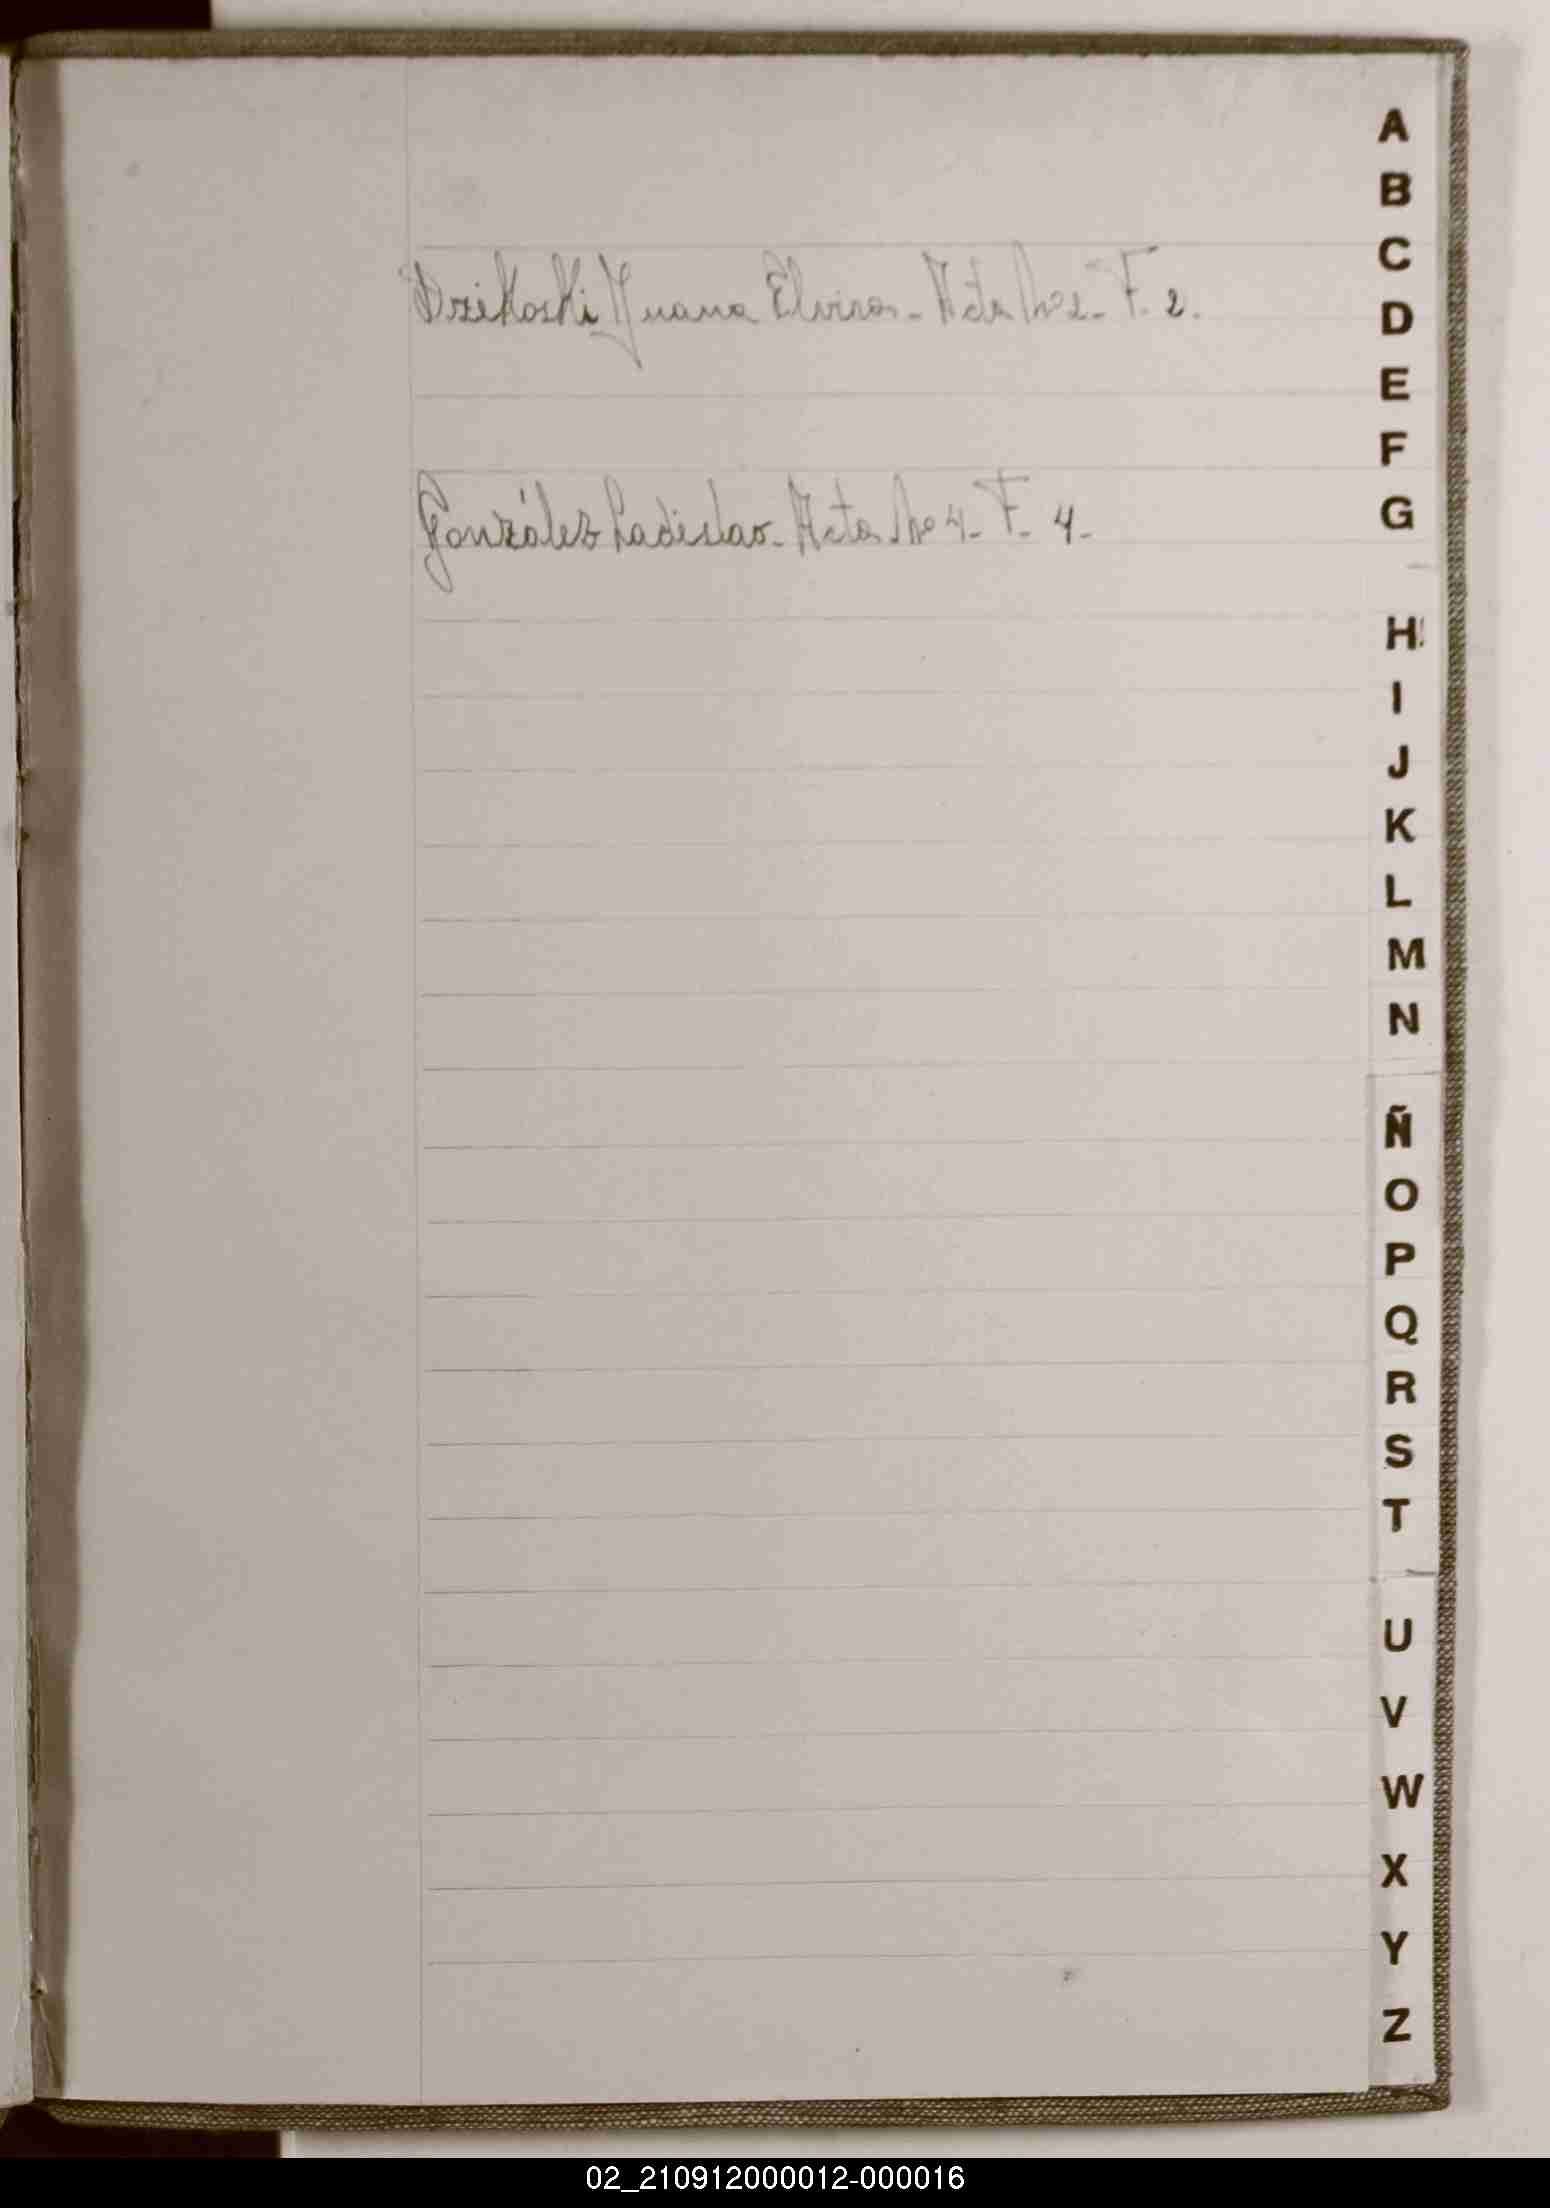 Dzikoski Juana Elvira - Acta Nº 2 - F. 2.
González Ladislao - Acta Nº 4 - F. 4 -
A
B
C
D
E
F
G
H
I
J
K
L
M
N
Ñ
O
P
Q
R
S
T
U
V
W
X
Y
Z
02_210912000012-000016